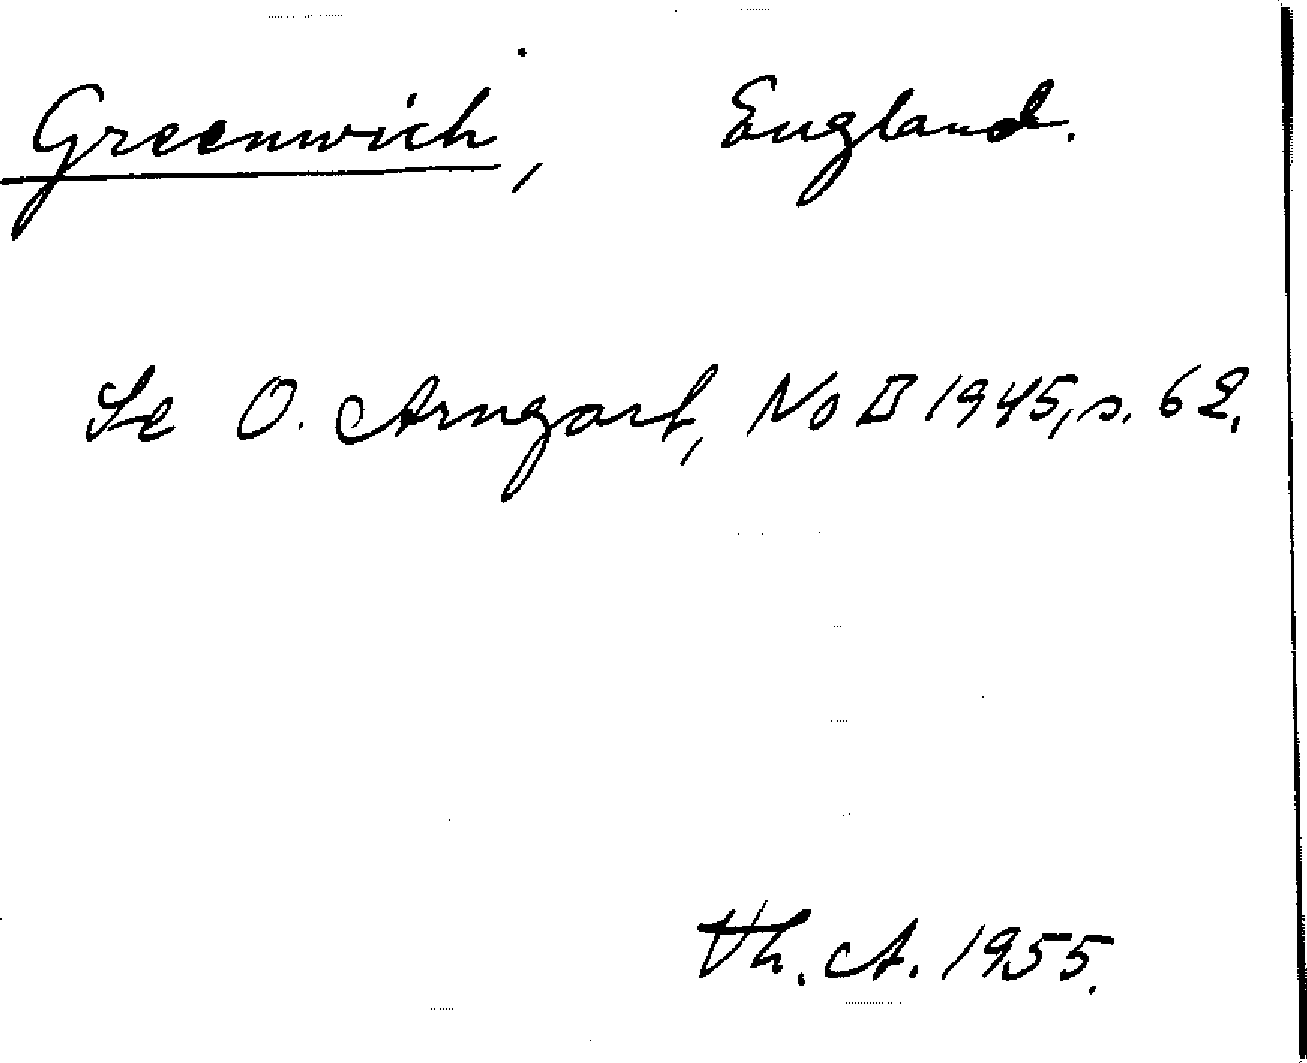 Greenwich, England.
Se O. Arngart, NoB 1945, s. 62.
Th. A. 1955.